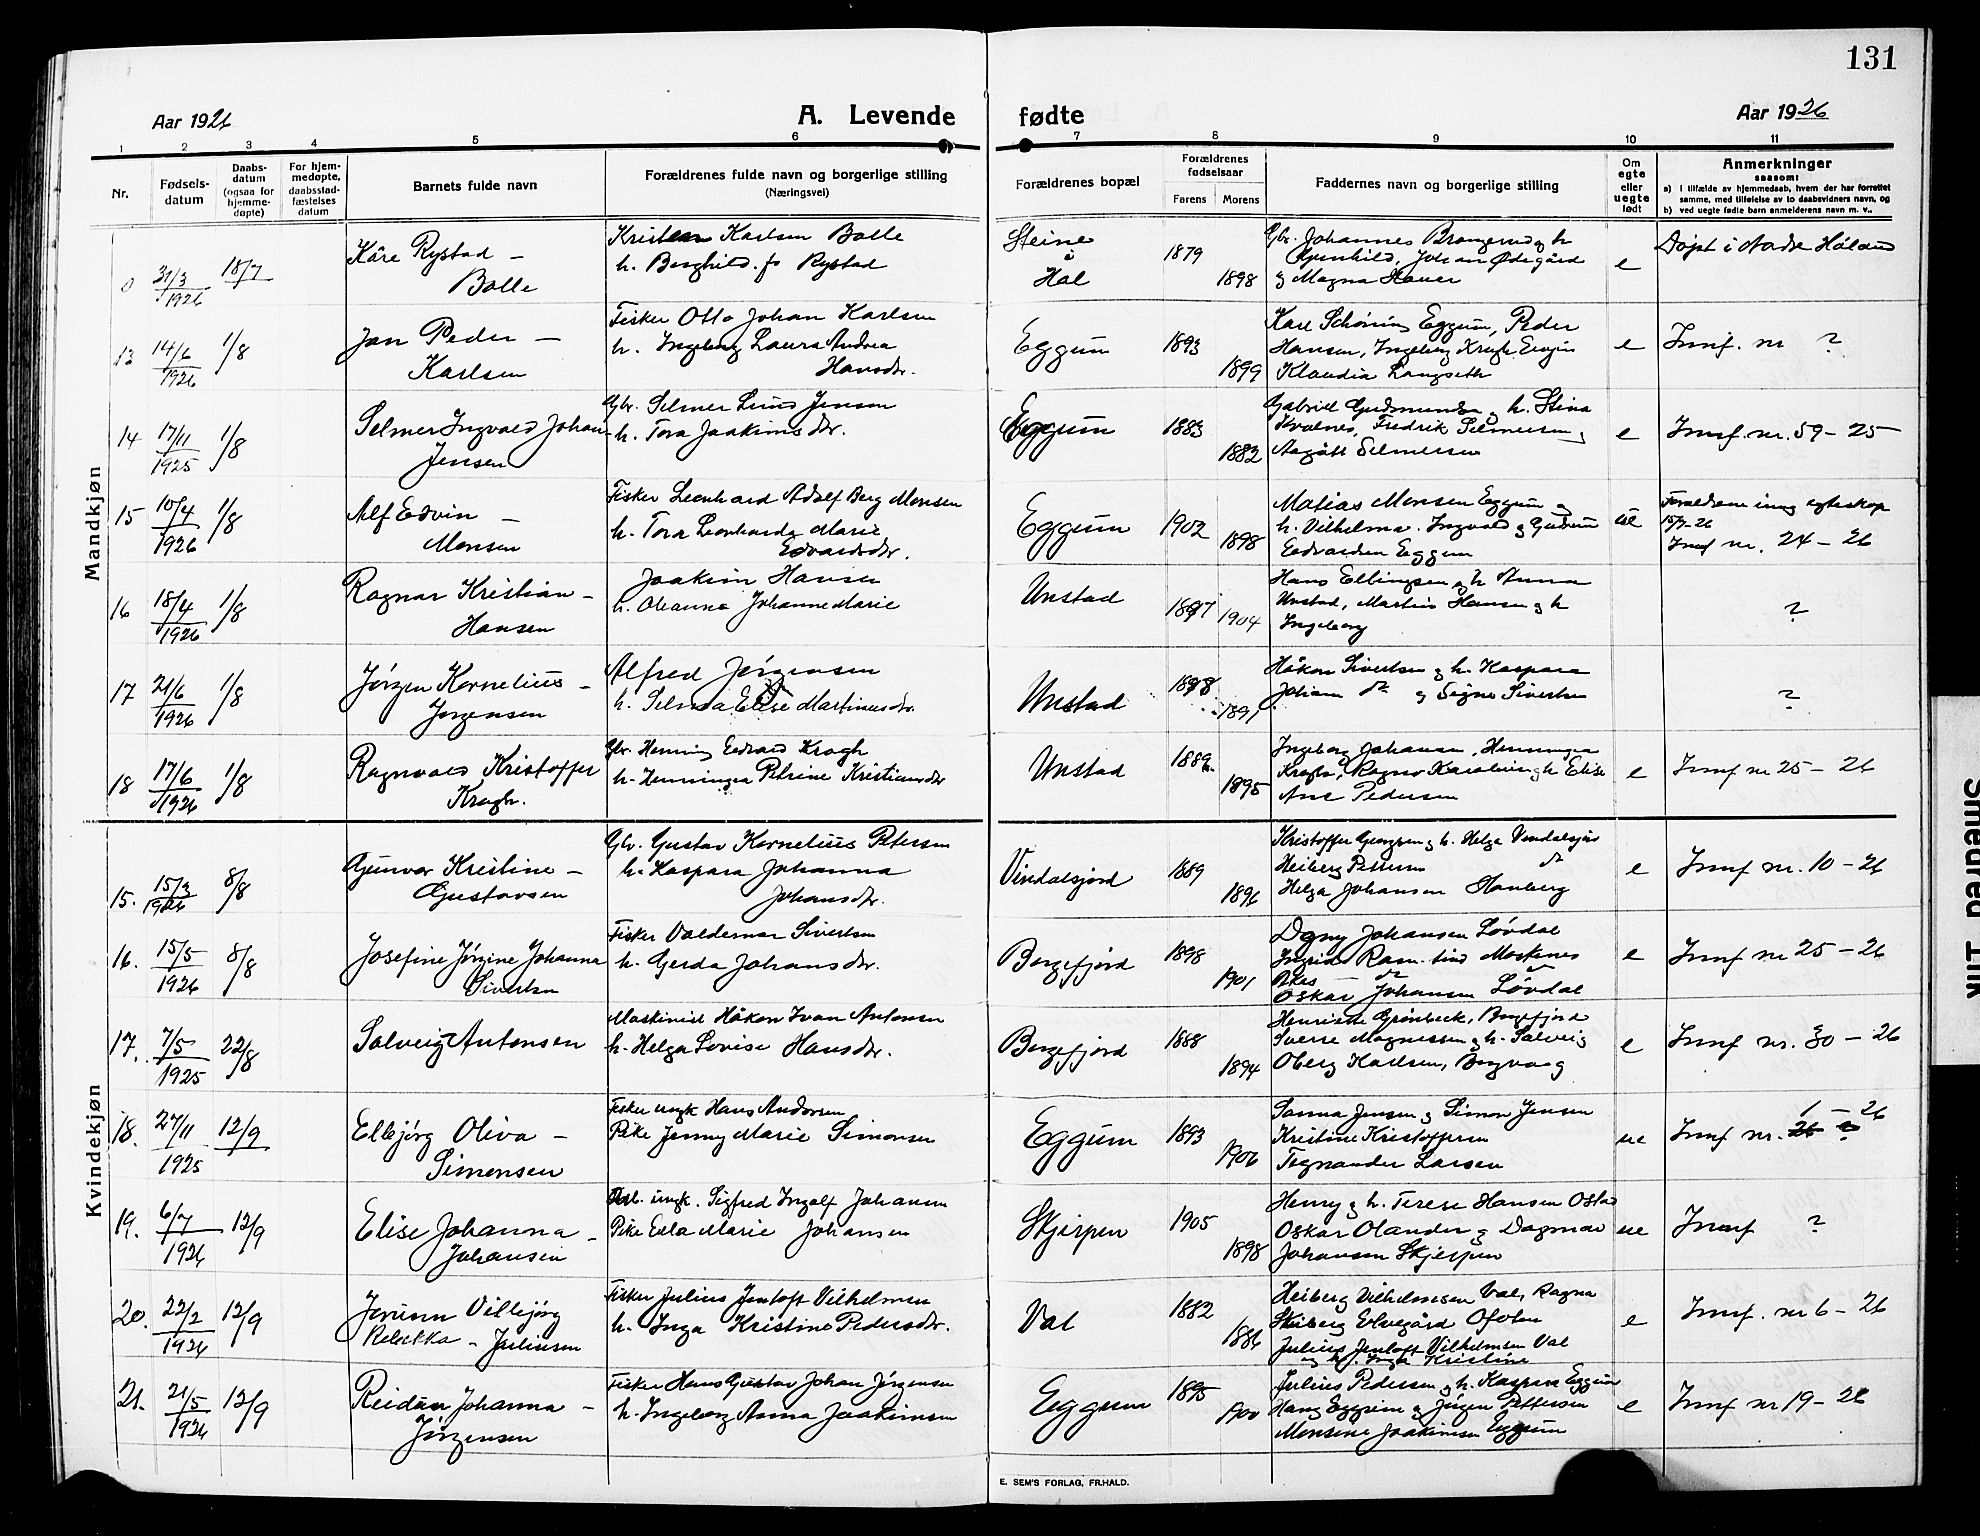 131
Aar 1926
A. Levende
fødte
Aar 1926
1 2 3 4 5 6 7 8 9 10 11
Nr.
Fødsels-
datum
Daabs-
datum
(ogsaa for
hjemme-
døpte)
For hjem-
medøpte,
daabsstad-
fæstelses
datum
Barnets fulde navn
Forældrenes fulde navn og borgerlige stilling
(Næringsvei)
Forældrenes bopæl
Forældrenes
fødselsaar
Farens Morens
Faddernes navn og borgerlige stilling
Om
egte
eller
uegte
født
Anmerkninger
saasom:
a) i tilfælde av hjemmedaab, hvem der har forrettet
samme, med tilføielse av to daabsvidners navn, og
b) ved uegte fødte barn anmelderens navn m. v..
Mandkjøn
0 31/3 1926 18/7
Kåre Rystad –
Bolle
Kristian Karlsen Bolle
h. Borghild f. Rystad
Steine
i
Hol
1879 1898
Gbr. Johannes h
Johan Ødegård
og Magna
e
Døpt i Nordre Høland
13 14/6 1926 1/8
Jan Peder –
Karlsen
Fisker Otto Johan Karlsen
h. Ingeborg Laura Andrea
Hansdtr.
Eggum
1893 1899
Karl Schøning Eggum, Peder
Hansen, Ingeborg Krogh
Klaudia Langseth
e
Innf. nr ?
14 17/11 1925 1/8
Selmer Ingvald Johan
Jensen
Gbr. Selmer Lund Jensen
h. Tora Joakimsdtr.
Eggum
1883 1882
Gabriel Gudmundsen og h. Stina
Kvalnes, Fredrik Selmersen og
Aagått Selmersen
e
Innf. nr. 59 – 25
15 10/4 1926 1/8
Alf Edvin –
Monsen
Fisker Leonhard Adolf Berg Monsen
h. Tora Leonharda Marie
Edvardsdtr.
Eggum
1902 1898
Matias Monsen Eggum og
h. Vilhelma. Ingvald og Gudrun
Edvardsen Eggum
ue
Forældrene inng egteskap
15/7-26
Innf nr. 24 – 26
16 18/4 1926 1/8
Ragnar Kristian –
Hansen
Joakim Hansen
h. Oleanna Johanne Marie
Unstad
1897 1904
Hans Ellingsen og h Anna
Unstad, Martin Hansen og h
Ingeborg
?
17 21/6 1926 1/8
Jørgen Kornelius –
Jørgensen
Alfred Jørgensen
h. Selma Elise Martinusdtr.
Unstad
1898 1891
Håkon Sivertsen og h. Kaspara
Johann do og Signe Sivertsen
?
18 17/6 1926 1/8
Ragnvald Kristoffer
Krogh.
Gbr. Henning Edvard Krogh
h. Henningea Petrine Kristiansdtr
Unstad
1889 1895
Ingeborg Johansen, Henningea
Krogh, Ragnv Karolius og h Elise
Ane Pedersen
e
Innf nr 25 – 26
Kvindekjøn
15. 15/3 1926 8/8
Gunvor Kristine –
Gustavsen
Gbr. Gustav Kornelius Petersen
h. Kaspara Johanna
Johansdtr.
Vindalsjord
1889 1896
Kristoffer Georgsen og h. Helga Vindalsjord
Heiberg Pettersen do
Helga Johansen Hanberg
e
Innf nr. 10 – 26
16. 15/5 1926 8/8
Josefine Jørgine Johanna
Sivertsen
Fisker Valdemar Sivertsen
h. Gerda Johansdtr.
Borgefjord
1898 1901
Dagny Johansen Løvdal
Ingrid Moskenes
Oskar Johansen Løvdal
e
Innf nr 25 – 26
17. 7/5 1925 22/8
Solveig Antonsen
Maskinist Håkon Ivan Antonsen
h. Helga Lovise Hansdtr.
Borgefjord
1888 1894
Henriette Grønbeck, Borgefjord
Sverre Magnussen og h. Solveig
Oberg Karlsen, Borgvaag
e
Innf nr. 30 – 26
18. 27/11 1925 12/9
Ellbjørg Oliva –
Simonsen
Fisker ungk Hans Andorsen
Pike Jenny Marie Simonsen
Eggum
1893 1906
Sanna Jensen og Simon Jensen
Kristine Kristoffersen
Tognander Larsen
ue
Innf nr. 1 – 26
19. 6/7 1926 12/9
Elise Johanna –
Johansen
ungk. Sigfred Ingolf Johansen
Pike Edla Marie Johansen
Skjerpen
1905 1898
Henry og h. Terese Hansen Ostad
Oskar Olander og Dagmar
Johansen Skjerpen
ue
Innf ?
20. 22/2 1926 12/9
Jorunn Villbjørg
Rebekka – Juliusen
Fisker Julius Jentoft Vilhelmsen
h. Inga Kristine Pedersdtr.
Val
1882 1886
Heiberg Vilhelmsen Val, Ragna
Elvegård Ofoten
Julius Jentoft Vilhelmsen Val
og h. Inga Kristine
e
Innf. nr 6 – 26
21. 21/5 1926 12/9
Reidun Johanna –
Jørgensen
Fisker Hans Gustav Johan Jørgensen
h. Ingeborg Anna Joakimsen
Eggum
1895 1900
Julius Pedersen og h. Kaspara Eggum
Hans Eggum og Jørgen Pettersen
Monsine Joakimsen Eggum
e
Innf nr 19 – 26
E. SEM'S FORLAG, FR.HALD.